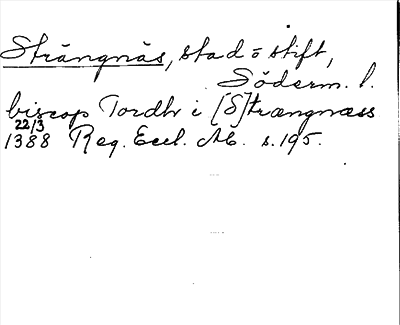 Strängnäs, stad o stift,
Söderm. l.
biscop Tordhr i [S]trængnæss
22/3
1388 Reg. Eccl. M. s. 195.